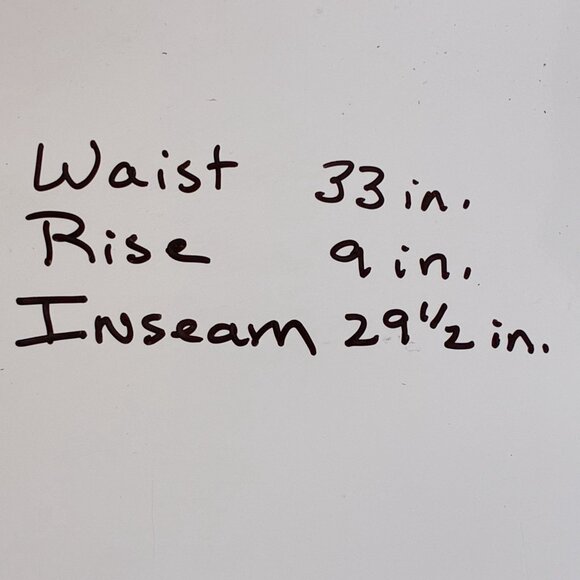 Waist 33 in.
Rise 9 in.
Inseam 29 1/2 in.